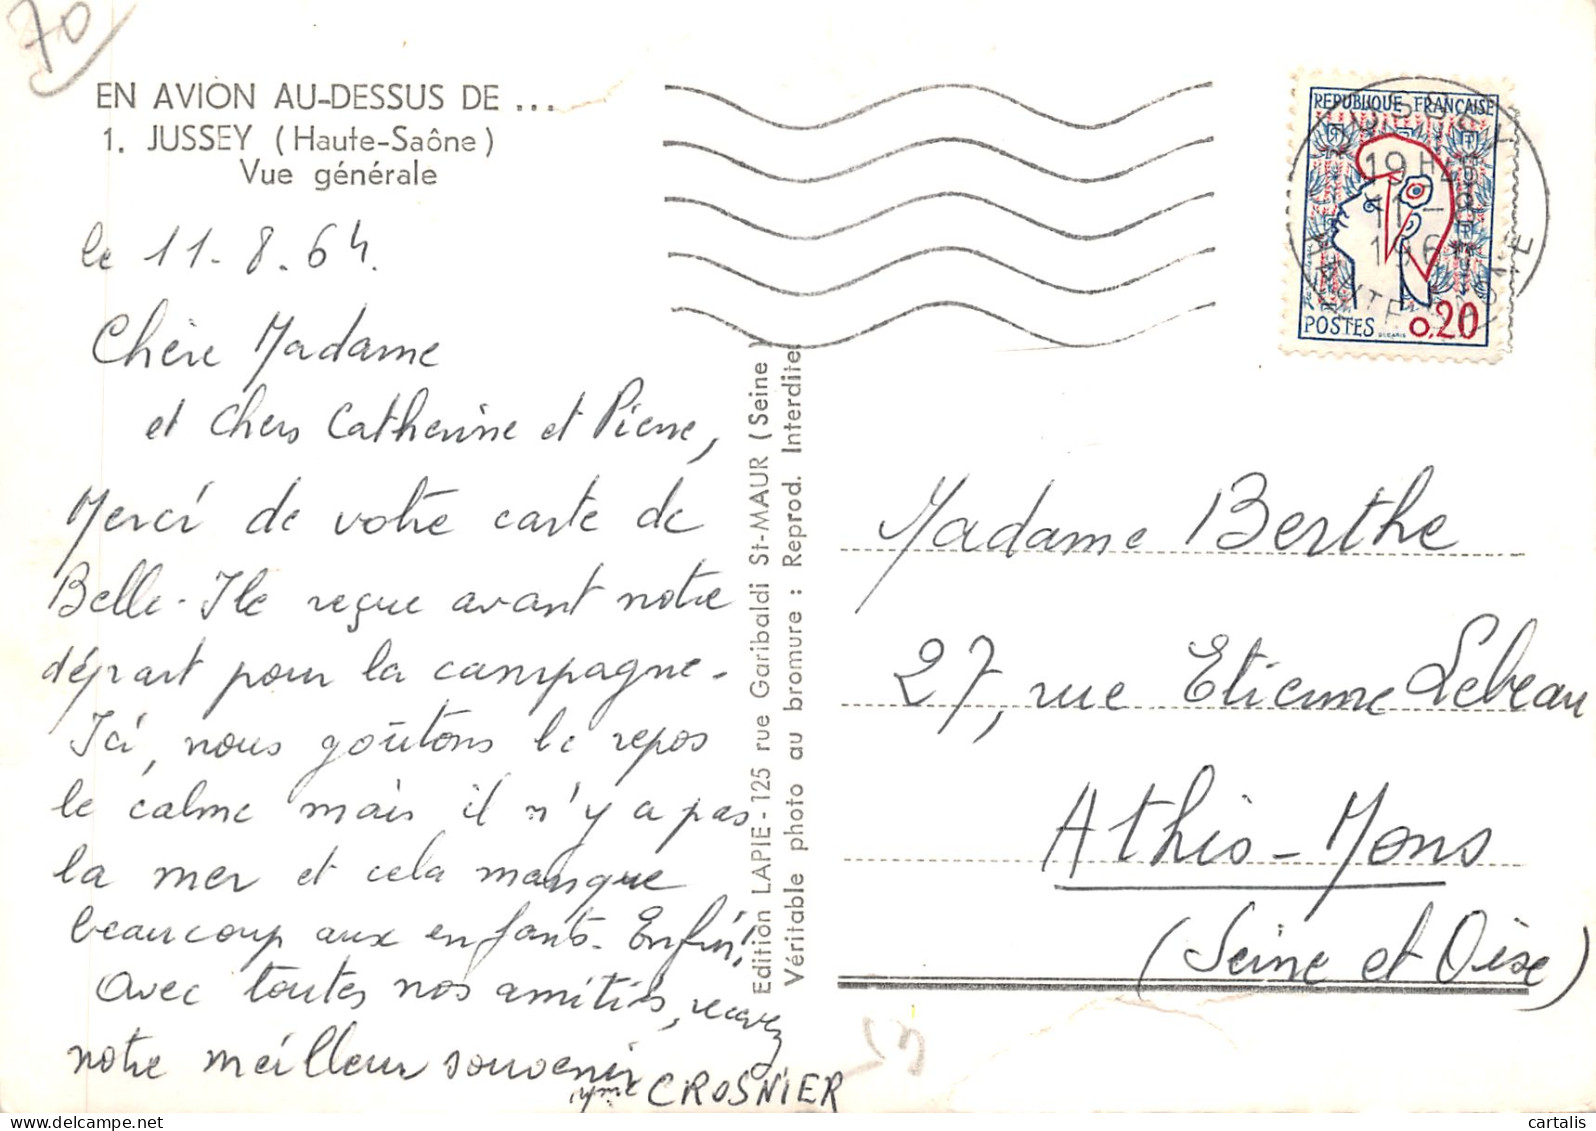 70
EN AVION AU-DESSUS DE ...
1. JUSSEY (Haute-Saône)
Vue générale
le 11-8-64.
Chère Madame
et chers Catherine et Pierre,
Merci de votre carte de
Belle-Ile reçue avant notre
départ pour la campagne.
Ici, nous goûtons le repos
le calme mais il n'y a pas
la mer et cela manque
beaucoup aux enfants. Enfin!
Avec toutes nos amitiés, recevez
notre meilleur souvenir
Mme CROSNIER
Edition LAPIE - 125 rue Garibaldi St-MAUR (Seine)
Véritable photo au bromure : Reprod. Interdite
REPUBLIQUE FRANÇAISE
POSTES 0,20
JUSSEY
19 H45
11 - 8
196
HAUTE SAONE
Madame Berthe
27, rue Etienne Lebeau
Athis-Mons
(Seine et Oise)
cartalis